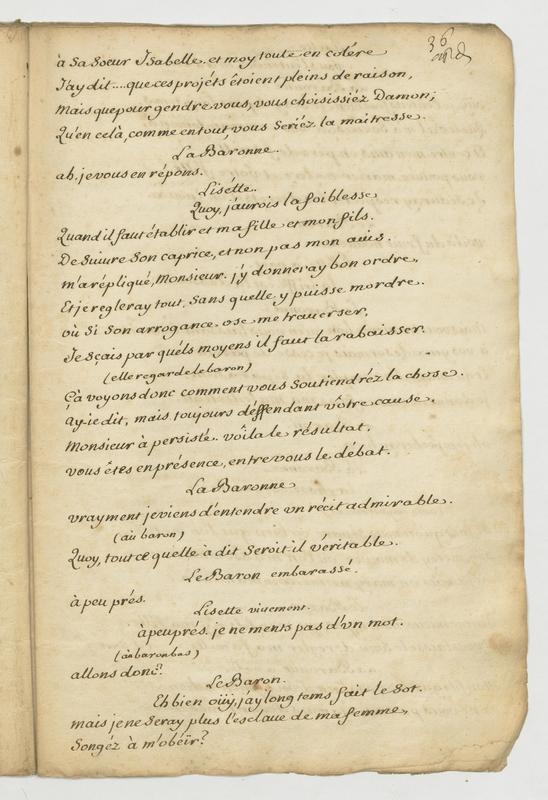 36
à sa soeur Isabelle. et moy toute en colére
J'ay dit.... que ces projéts êtoient pleins de raison,
Mais que pour gendre vous, vous choisissiéz Damon;
Qu'en celà, comme en tout, vous seriéz la maitresse.
La Baronne.
ah. je vous en répons.
Lisétte.
Quoy, j'aurois la foiblesse
Quand il faut établir et ma fille et mon fils.
De suivre son caprice, et non pas mon auis.
m'a répliqué, Monsieur. j'y donneray bon ordre,
Et je regleray tout, sans quelle y puisse mordre.
où si son arrogance ose me trauerser,
Je sçais par quéls moyens il faut la rabaisser.
(elle regarde le baron)
Çà voyons donc comment vous soutiendréz la chose.
Ay-ie dit, mais toujours déffendant vôtre cause,
Monsieur à persisté. voîla le résultat.
vous êtes en présence, entre vous le débat.
La Baronne
vrayment je viens d'entendre vn récit admirable.
(au baron)
Quoy, tout ce quelle à dit seroit-il véritable.
Le Baron embarassé.
à peu prés.
Lisette viuement.
à peu prés. je ne ments pas d'vn mot.
(au baron bas)
allons donc?
Le Baron.
Eh bien oüy, j'ay long tems fait le sot.
mais je ne seray plus l'esclaue de ma femme,
Songéz à m'obéïr?